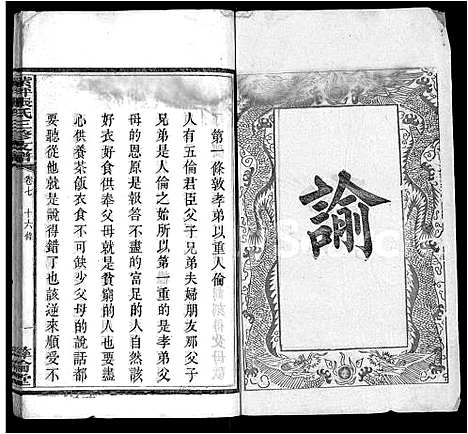 諭
第一條敦孝弟以重人倫
人有五倫君臣父子兄弟夫婦朋友那父子
兄弟是人倫之始所以第一重的是孝弟父
母的恩原是報答不盡的富足的人自然該
好好食供奉父母就是貧窮的人也要盡
心供養茶飯衣食不可缺少父母的說話都
要聽從他就是說得錯了也該逆來順受不
張氏三修支譜
卷七
十六條
一